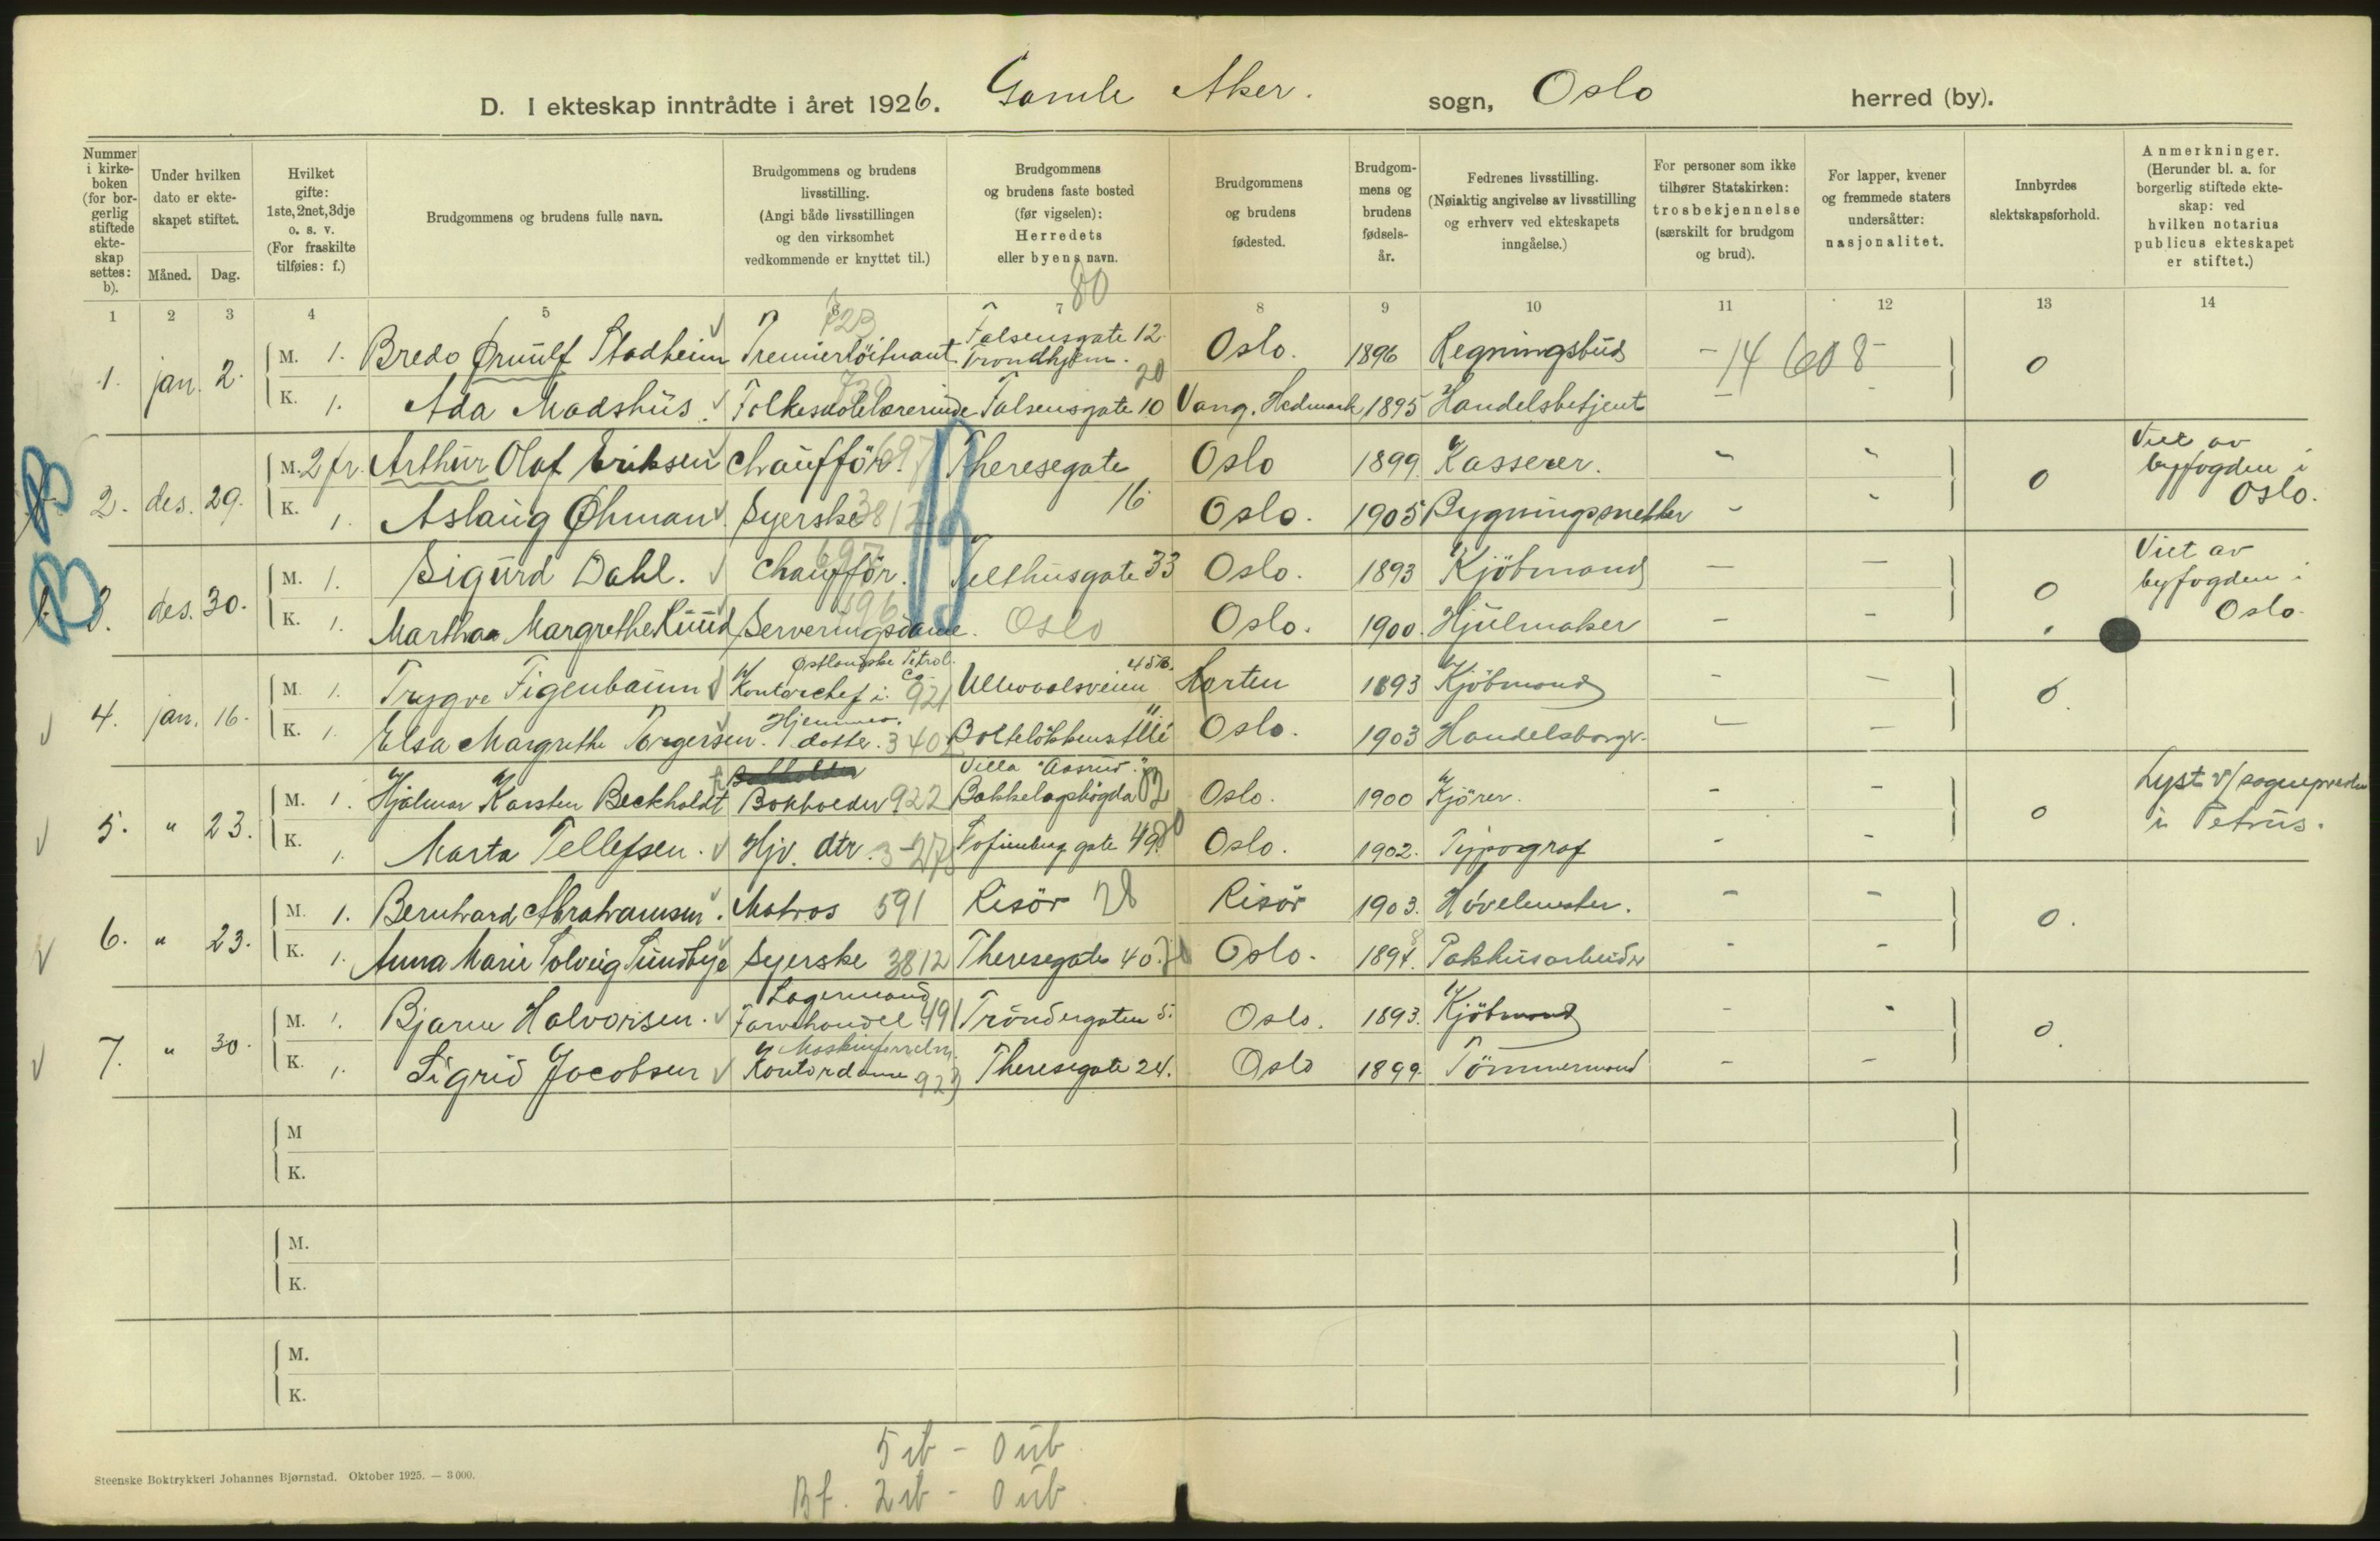 D. I ekteskap inntrådte i året 1926. Gamle Aker. sogn, Oslo herred (by).
Nummer i kirkeboken (for borgerlig stiftede ekteskap settes: b).
Under hvilken dato er ekteskapet stiftet.
Måned. Dag.
Hvilket gifte: 1ste, 2net, 3dje o. s. v. (For fraskilte tilføies: f.)
Brudgommens og brudens fulle navn.
Brudgommens og brudens livsstilling. (Angi både livsstillingen og den virksomhet vedkommende er knyttet til.)
Brudgommens og brudens faste bosted (før vigselen): Herredets eller byens navn.
Brudgommens og brudens fødested.
Brudgommens og brudens fødselsår.
Fedrenes livsstilling. (Nøiaktig angivelse av livsstilling og erhverv ved ekteskapets inngåelse.)
For personer som ikke tilhører Statskirken: trosbekjennelse (særskilt for brudgom og brud).
For lapper, kvener og fremmede staters undersåtter: nasjonalitet.
Innbyrdes slektskapsforhold.
Anmerkninger. (Herunder bl. a. for borgerlig stiftede ekteskap: ved hvilken notarius publicus ekteskapet er stiftet.)
80
1 2 3 4 5 6 7 8 9 10 11 12 13 14
1. jan. 2. M. 1. Bredo Ørnulf Stadheim Premierlöitnant 723 Falsensgate 12. Trondhjem. Oslo. 1896 Regningsbud - 14 608 - 0
K. 1. Ada Madshus. Folkeskolelærerinde Falsensgate 10 20 Vang. Hedmark 1895 Handelsbetjent -
B 2. des. 29. M. 2 fr. Arthur Olaf Eriksen Chaufför. 697 Theresegate Oslo 1899. Kasserer. - - 0 Viet av byfogden i Oslo.
K. 1. Aslaug Öhman Syerske 3812 16 Oslo. 1905 Bygningsmester - -
B 3. des. 30. M. 1. Sigurd Dahl. Chaufför. 697 Telthusgate 33 Oslo. 1893 Kjöbmand - - 0 Viet av byfogden i Oslo.
K. 1. Martha Margrethe Ruud Serveringsdame. Oslo Oslo. 1900. Hjulmaker - -
4. jan. 16. M. 1. Trygve Figenbaum Kontorchef i Østlandske Petrol. Co. 921 Ullevoalsveien 45B. Horten 1893 Kjöbmand - - 0.
K. 1. Elsa Margrethe Torgersen. Hjemmev. datter. 340 Oslo. 1903 Handelsborger. - -
5. " 23. M. 1. Hjalmar Karsten Beckholdt Bokholder 922 Villa "Aasrud." Bakkelagshögda Oslo. 1900 Kjörer. - - 0 Lyst v/ sognepresten i Petrus.
K. 1. Marta Tellefsen. Hjv. dtr. Tofienberg gate 49. Oslo. 1902. Typograf - -
6. " 23. M. 1. Bernhard Abrahamsen. Matros 591 Risör 28 Risör 1903. Hövelmester. - - 0.
K. 1. Anna Marie Solveig Sundbye Syerske 3812 Theresegate 40. Oslo. Pakhusarbeider - -
7. " 30. M. 1. Bjarne Halvorsen. Lagermand Farvehandel 491 Tröndergaten 5. Oslo. 1893. Kjöbmand - - 0.
K. 1. Sigrid Jacobsen Kontordame 923 Theresegate 24. Oslo 1899. Tömmermand - -
M
K.
M.
K.
M.
K.
5 ib - 0 ub
Bf. 2 ib - 0 ub
Steenske Boktrykkeri Johannes Bjørnstad. Oktober 1925. — 3 000.